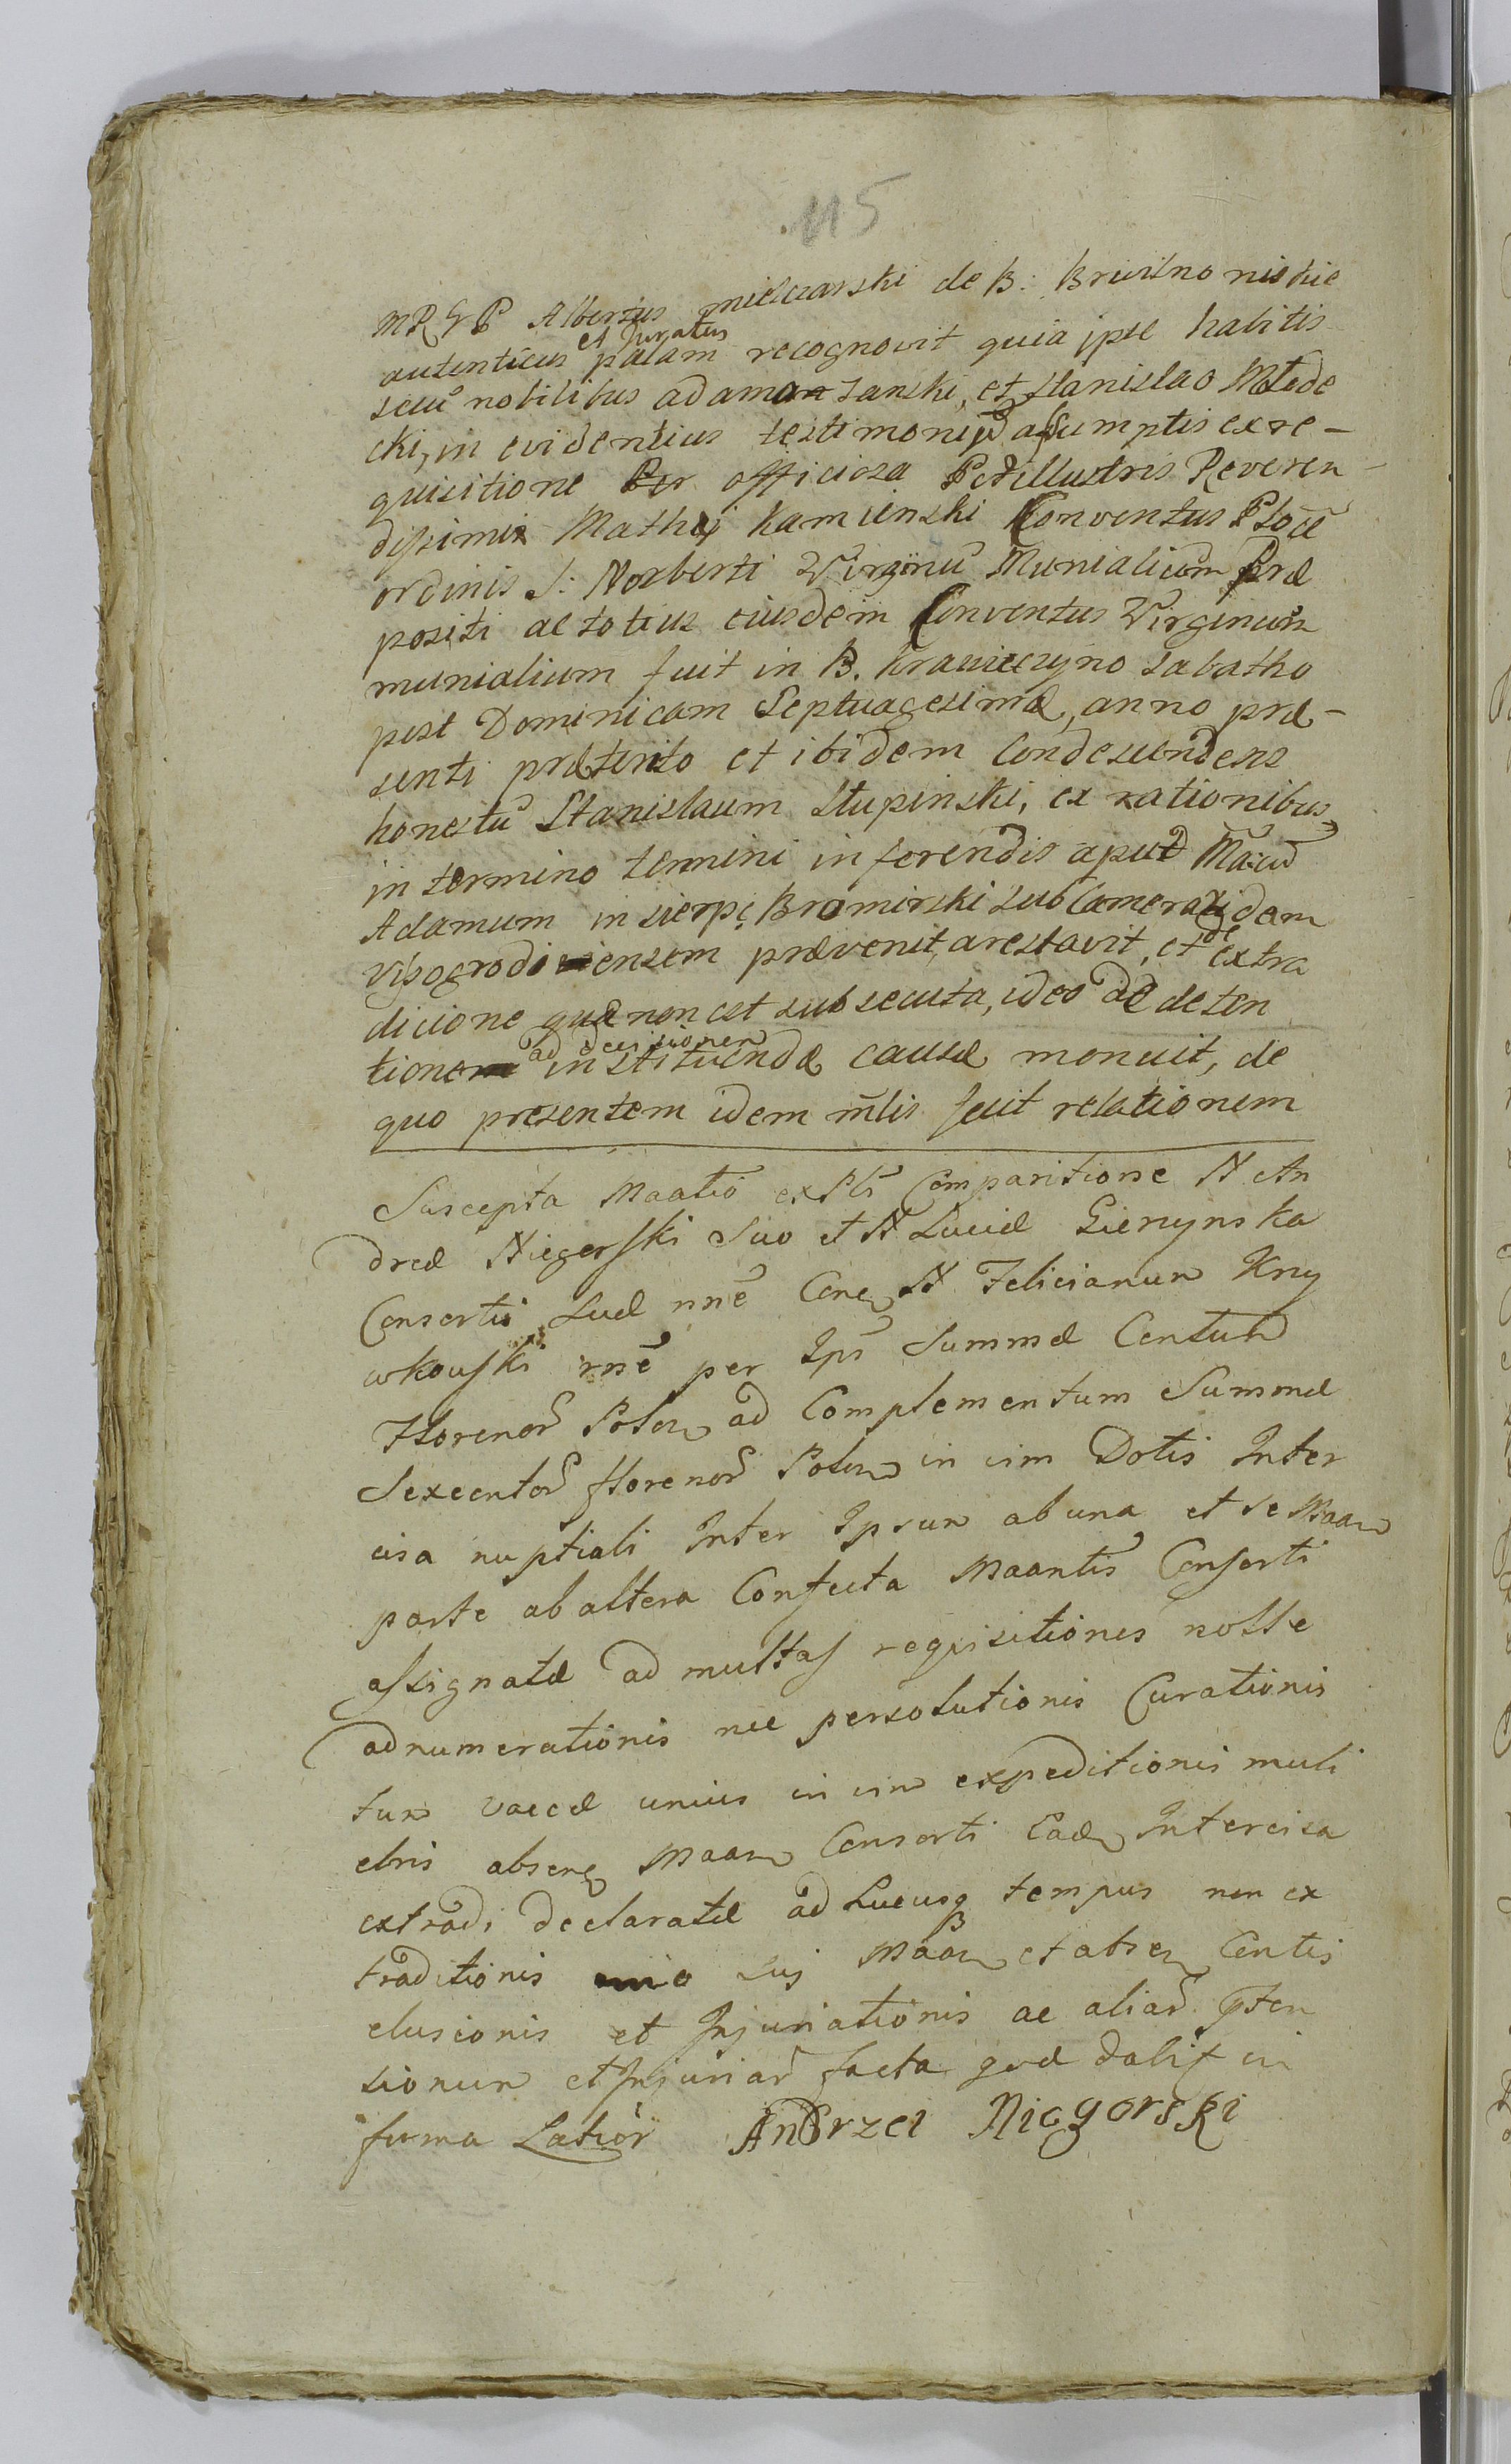 115
MRGP Albertus mielczarski de B: Brwilno nis kie
autenticus et Juratus palam recognovit quia ipse habitis
secū nobilibus adam Janski, et Stanislao Mlode
cki, in evidentius testimonium assumptis ex re-
quisitione officiosa Perillustris Reveren-
dissimi Mathei Kamienski Conventus Ploce
ordinis S: Norberti Virginū Munialium Præ
positi ac totius eiusdem Conventus Virginum
munialium fuit in B. krawieczyno sabatho
post Dominicam Septuagesimæ, anno præ-
senti præterito et ibidem Condescendens
honestū Stanislaum Stupinski, ex rationibus
in termino termini inferendis apud
Adamum in sierpc Bromirski Sub Cameraridem
visogrodiensem prævenit, arestavit, et de extra
dicione quæ non est subsecuta, ideo de deten
tione ad decisionem instituendæ causæ monuit, de
quo presentem idem mlis fecit relationem
Suscepta Maatio ex Comparitione N An
dreæ Niegorski Suo et N Luciæ
Consortis Suæ nñe N Felicianum Kny
wkowski per Ips Summæ Centum
Florenor Polon ad Complementum Summæ
Sexcentor florenor Polon in vim Dotis Inter
cisa nuptiali Inter Ipsum ab una et se Maan
parte ab altera Confecta Maantis Consorti
assignatæ ad multas requisitiones nosse
adnumerationis nec persolutionis Curationis
tum vaccæ unius in vim expeditionis muli
ebris Maan Consorti Intercisa
extradi declaratæ ad hucusq tempus non ex
traditionis Maan et
elusionis et Injuriationis ac aliar
sionum et Injuriar facta quæ dabit in
forma Latior Andrzei Niegorski